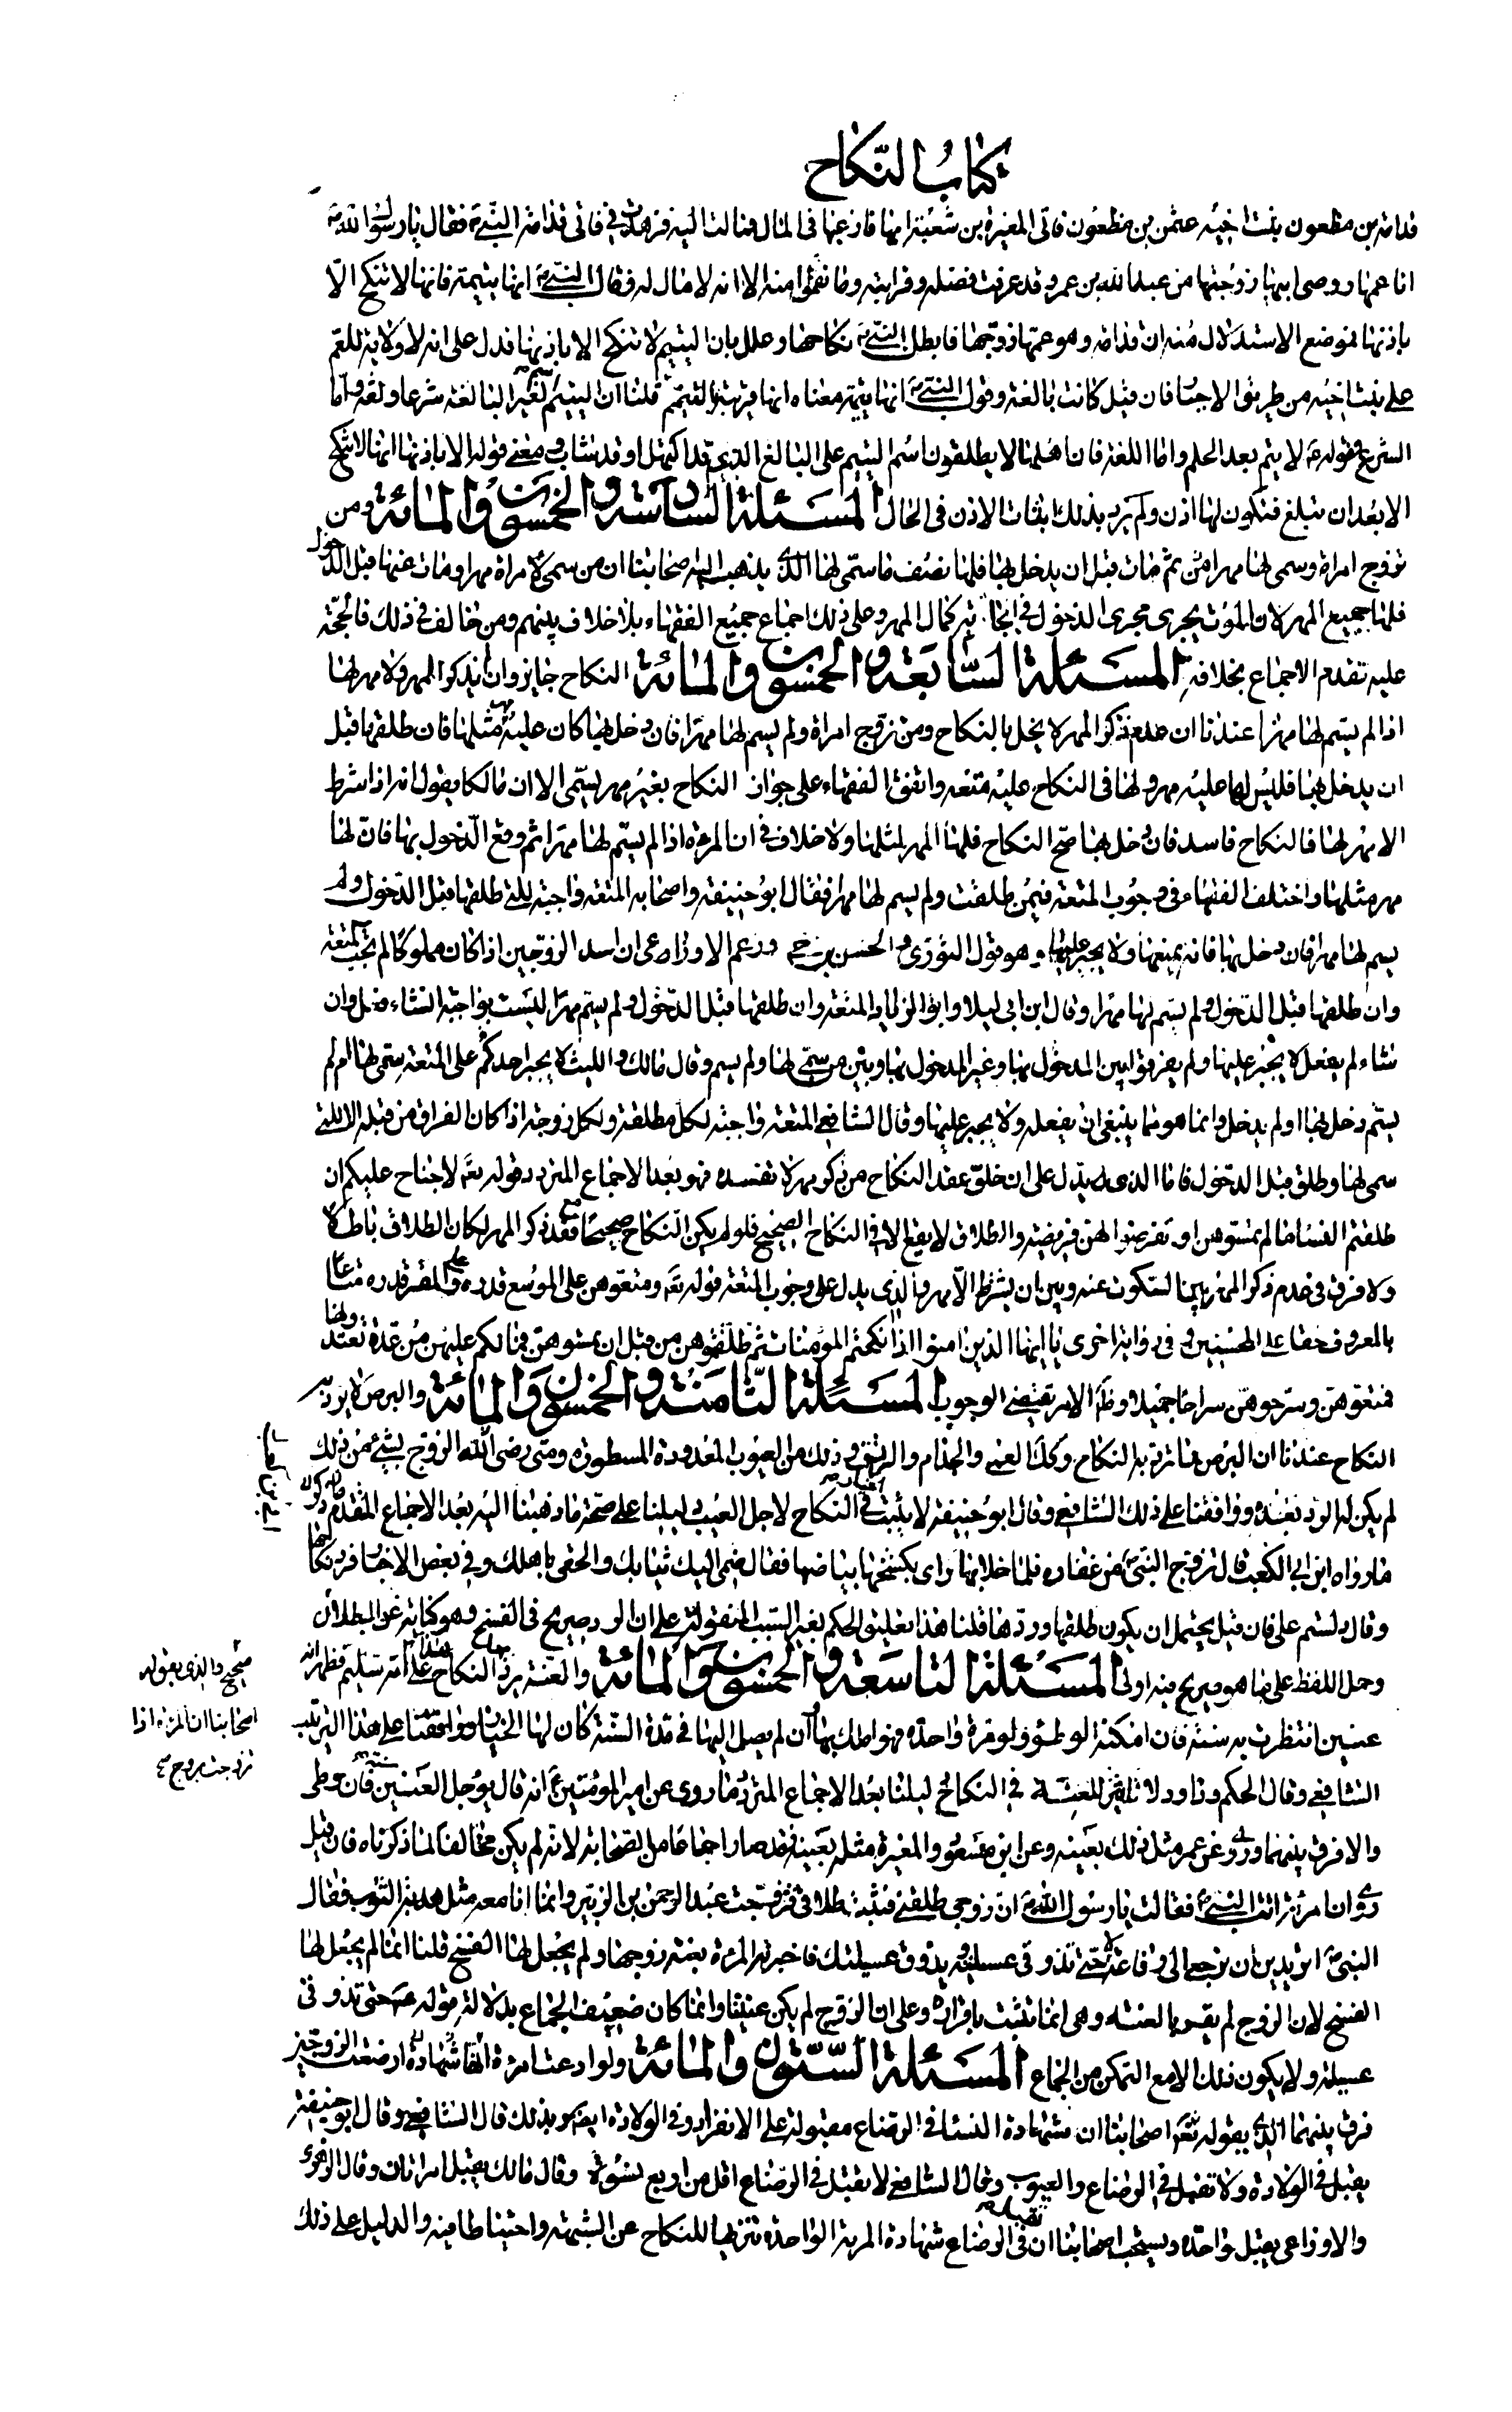 كتاب النكاح
قدامة بن مظعون بنت اخيه عثمن بن مظعون فاتى المغيرة بن شعبة امها فارغبها في المال فمالت اليه فاتى قدامة النبي فقال يا رسول الله
انا عمها ووصى ابيها زوجتها من عبد الله بن عمر وقد عرفت فضله وقرابته وما نقموا منه الا انه لا مال له فقال النبي انها يتيمة فانها لا تنكح الا
باذنها فموضع الاستدلال منه ان قدامة وهو عمها زوجها فابطل النبي نكاحها وعلل بان اليتيم لا تنكح الا باذنها فدل على انه لا ولاية للعم
على بنت اخيه من طريق الاجبار فان قيل كانت بالغة وقول النبي انها يتيمة معناه انها قريبة باليتم قلنا ان اليتيم اسم لغير البالغة شرعا ولغة واما
الشرع فقوله لا يتم بعد الحلم واما اللغة فان اهلها لا يطلقون اسم اليتيم على البالغ الذي قد اكتهل او قد شاب ومعنى قوله الا باذنها انها لا تنكح
الا بعد ان تبلغ فتكون لها اذن ولم يرد بذلك اثبات الاذن في الحال المسئلة السادسة والخمسون والمائة ومن
تزوج امراة وسمى لها مهرا ثم مات قبل ان يدخل بها فلها نصف ما سمى لها الذي يذهب اليه اصحابنا ان من سمى لامراة مهرا ومات عنها قبل الدخول
فلها جميع المهر لان الموت يجرى مجرى الدخول في كمال المهر وعلى ذلك اجماع جميع الفقهاء بلا خلاف بينهم ومن خالف في ذلك فالحجة
عليه تقدم الاجماع بخلافه المسئلة السابعة والخمسون والمائة النكاح جايز وان لم يذكر المهر ولا مهر لها
اذا لم يسم لها مهرا عندنا ان عدم ذكر المهر لا يخل بالنكاح ومن تزوج امراة ولم يسم لها مهرا فان دخل بها كان عليه مهر مثلها فان طلقها قبل
ان يدخل بها فليس لها عليه مهر ولها في النكاح عليه متعه واتفق الفقهاء على جواز النكاح بغير مهر يسمى الا ان مالكا يقول انه اذا شرط
الا مهر لها فالنكاح فاسد فان دخل بها صح النكاح فلها المهر لمثلها ولا خلاف في ان المرءة اذا لم يسم لها مهرا ثم وقع الدخول بها فان لها
مهر مثلها واختلف الفقهاء في وجوب المتعة فيمن طلقت ولم يسم لها مهرا فقال ابو حنيفة واصحابه المتعة واجبة للتي طلقها قبل الدخول ولم
يسم لها مهرا فان دخل بها فانه يمتعها ولا يجبر عليها وهو قول الثوري والحسن بن حي وزعم الاوزاعى ان احد الزوجين اذا كان مملوكا لم تجب المتعة
وان طلقها قبل الدخول ولم يسم لها مهرا وقال ابن ابى ليلا وابو الزناد المتعة وان طلقها قبل الدخول ولم يسم مهرا ليست بواجبة ان شاء فعل وان
شاء لم يفعل لا يجبر عليها ولم يفرقوا بين المدخول بها وغير المدخول بها وبين من سمى لها ولم يسم وقال مالك والليث لا يجبر احدكم على المتعة سمى لها ام لم
يسم دخل بها او لم يدخل وانما هو مما ينبغي ان يفعله ولا يجبر عليها وقال الشافعي المتعة واجبة لكل مطلقة ولكل زوجة اذا كان الفراق من قبله الا التي
سمى لها وطلق قبل الدخول فاما الذى يدل على ان خلو عقد النكاح من ذكر مهر لا تفسده فهو بعد الاجماع المتردد قوله تعالى لا جناح عليكم ان
طلقتم النساء ما لم تمسوهن او تفرضوا لهن فريضة والطلاق لا يقع الا في النكاح الصحيح فلو لم يكن النكاح صحيحا مع فقد ذكر المهر لكان الطلاق باطلا
ولا فرق في عدم ذكر المهر بين السكوت عنه وبين ان يشرط الا مهر والذى يدل على وجوب المتعة قوله تعالى ومتعوهن على الموسع قدره وعلى المقتر قدره متاعا
بالمعروف حقا على المحسنين وفي اية اخرى يا ايها الذين امنوا اذا نكحتم المؤمنات ثم طلقتموهن من قبل ان تمسوهن فما لكم عليهن من عدة تعتدونها
فمتعوهن وسرحوهن سراحا جميلا وظاهر الامر يقتضى الوجوب المسئلة الثامنة والخمسون والمائة والبرص لا يرد به
النكاح عندنا ان البرص مما يرد به النكاح وكذا العمى والجذام والرتق وذلك من العيوب المعدودة المسطورة ومتى رضى الزوج بشئ من ذلك
لم يكن له الرد بعده ووافقنا على ذلك الشافعي وقال ابو حنيفة لا يثبت في النكاح لاجل العيب دليلنا على صحة ما ذهبنا اليه بعد الاجماع المتقدم ذكره
ما رواه ابن ابي الكعب قال تزوج النبي من غفار فلما خلا بها راى بكشحها بياضا فقال ضمى اليك ثيابك والحقى باهلك وفي بعض الاخبار فرد نكاحها
وقال دلستم على فان قيل يحتمل ان يكون طلقها وردها قلنا هذا تعليق الحكم بغير السبب المنقول على ان الرد صريح في الفسخ وهو كناية عن الطلاق
وحمل اللفظ على ما هو صريح فيه اولى المسئلة التاسعة والخمسون والمائة والعنة يرد بها النكاح على انه سليم فظهر انه
عنين انتظرت به سنة فان امكنه الوطئ ولو مرة واحدة فهو املك بها وان لم يصل اليها في مدة السنة كان لها الخيار ووافقنا على هذا الترتيب
الشافعي وقال الحكم وداود لا تاثير للعنة في النكاح دليلنا بعد الاجماع المتردد ما روى عن امير المؤمنين انه قال يؤجل العنين سنة فان وطى
والا فرق بينهما وروى عن عمر مثل ذلك بعينه وعن ابن مسعود والمغيرة مثله بعينه فقد صار اجماعا من الصحابة لانه لم يكن مخالفا لما ذكرناه فان قيل
روى ان امرءة اتت النبي فقالت يا رسول الله ان زوجي طلقني فبت طلاقى فتزوجت عبد الرحمن بن الزبير وانما انا معه مثل هدبة الثوب فقال
النبي اتريدين ان ترجعى الى رفاعة لا حتى تذوقى عسيلته ويذوق عسيلتك فاخبرته المرءة بعنة زوجها ولم يجعل لها الفسخ قلنا انما لم يجعل لها
الفسخ لان الزوج لم يقر بالعنة وهى انما تثبت باقراره وعلى ان الزوج لم يكن عنينا وانما كان ضعيف الجماع بدلالة قوله حتى تذوقى
عسيلته ولا يكون ذلك الا مع التمكن من الجماع المسئلة الستون والمائة ولو ادعت امرءة انها ارضعت الزوجين
فرق بينهما الذى يقوله اصحابنا ان شهادة النساء في الرضاع مقبولة على الانفراد وفي الولادة ايضا وبذلك قال الشافعي وقال ابو حنيفة
يقبل في الولادة ولا تقبل في الرضاع والعيوب وقال الشافعي لا يقبل في الرضاع اقل من اربع نسوة وقال مالك يقبل امراتان وقال الزهرى
والاوزاعى يقبل واحدة ويستحب اصحابنا ان تقبل في الرضاع شهادة المرءة الواحدة تنزيها للنكاح عن الشبهة واحتياطا فيه والدليل على ذلك
صحيح والذى يقوله
اصحابنا ان المرءة اذا
تزوجت بزوج